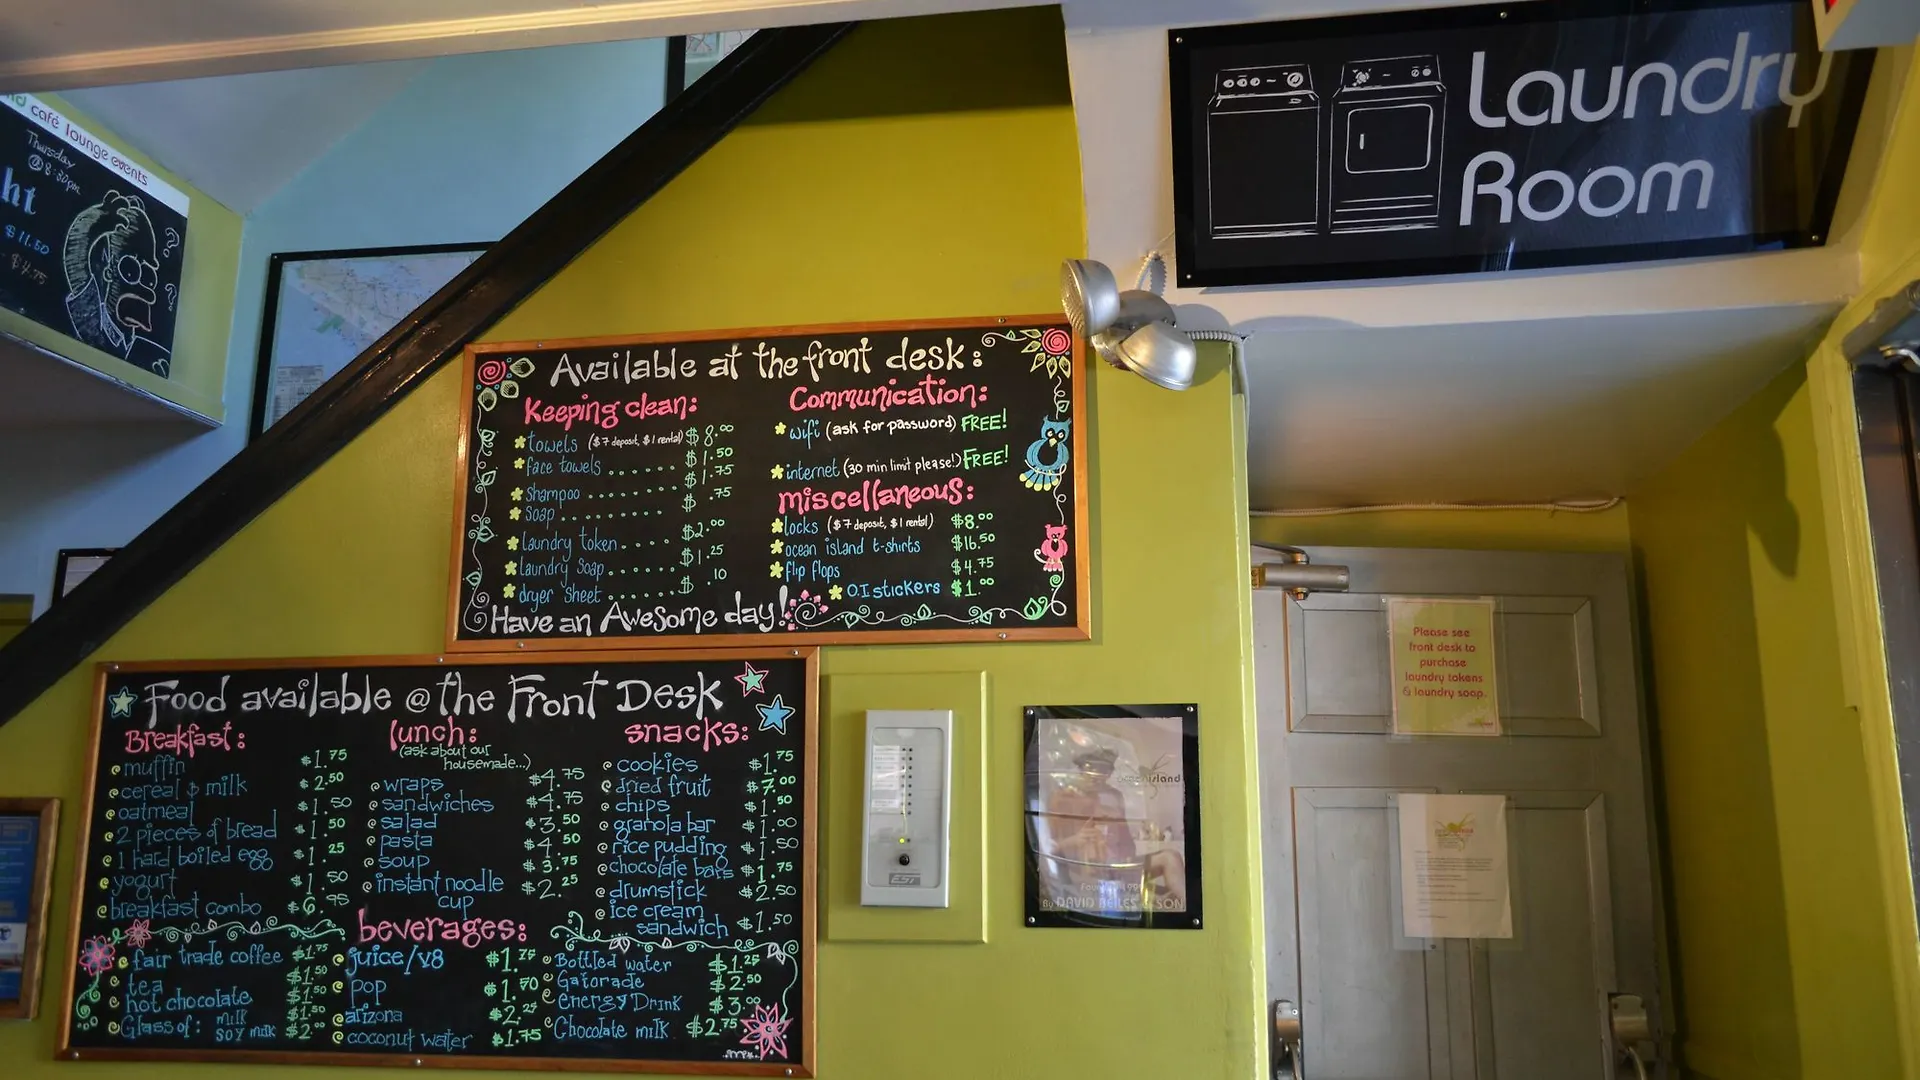 café lounge events
Thursday
@ 8:30pm
ht
$11.50
$4.75
Laundry
Room
Available at the front desk:
Keeping clean:
towels ($7 deposit, $1 rental) $8.00
face towels ....... $1.50
shampoo ........ $1.75
Soap ......... $.75
laundry token.... $2.00
laundry soap....... $1.25
dryer sheet....... $.10
Communication:
wifi (ask for password) FREE!
internet (30 min limit please!) FREE!
miscellaneous:
locks ($7 deposit, $1 rental) $8.00
ocean island t-shirts $16.50
flip flops $4.75
O.I stickers $1.00
Have an Awesome day!
Food available @ the Front Desk
Breakfast:
muffin $1.75
cereal & milk $2.50
oatmeal $1.50
2 pieces of bread $1.50
1 hard boiled egg $1.25
yogurt $1.50
breakfast combo $6.95
lunch:
(ask about our
housemade...)
wraps $4.75
sandwiches $4.75
salad $3.50
pasta $4.50
soup $3.75
instant noodle
cup $2.25
snacks:
cookies $1.75
dried fruit $7.00
chips $1.50
granola bar $1.00
rice pudding $1.50
chocolate bars $1.75
drumstick $2.50
ice cream
sandwich $1.50
beverages:
fair trade coffee $1.75
tea $1.50
hot chocolate $1.50
Glass of: milk $1.50
soy milk $2.00
juice/v8 $1.75
pop $1.50
arizona $2.25
coconut water $1.75
Bottled water $1.25
Gatorade $2.50
energy Drink $3.00
Chocolate milk $2.75
EST
Please see
front desk to
purchase
laundry tokens
& laundry soap.
island
By DAVID BEILES & SON